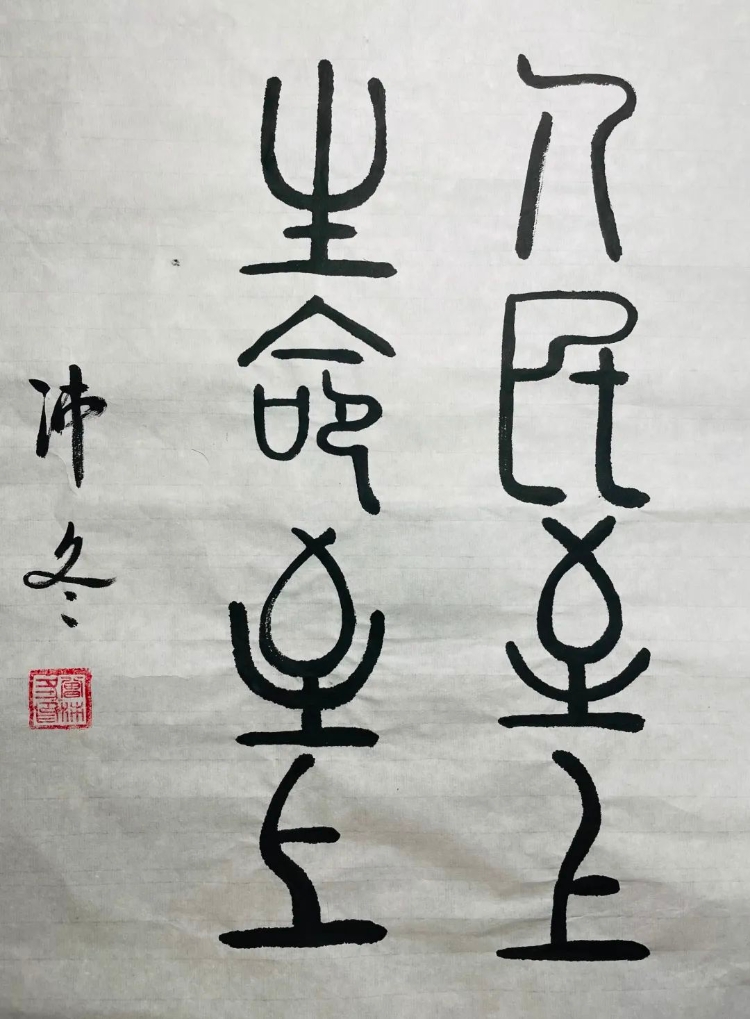 人民至上
生命至上
沛冬